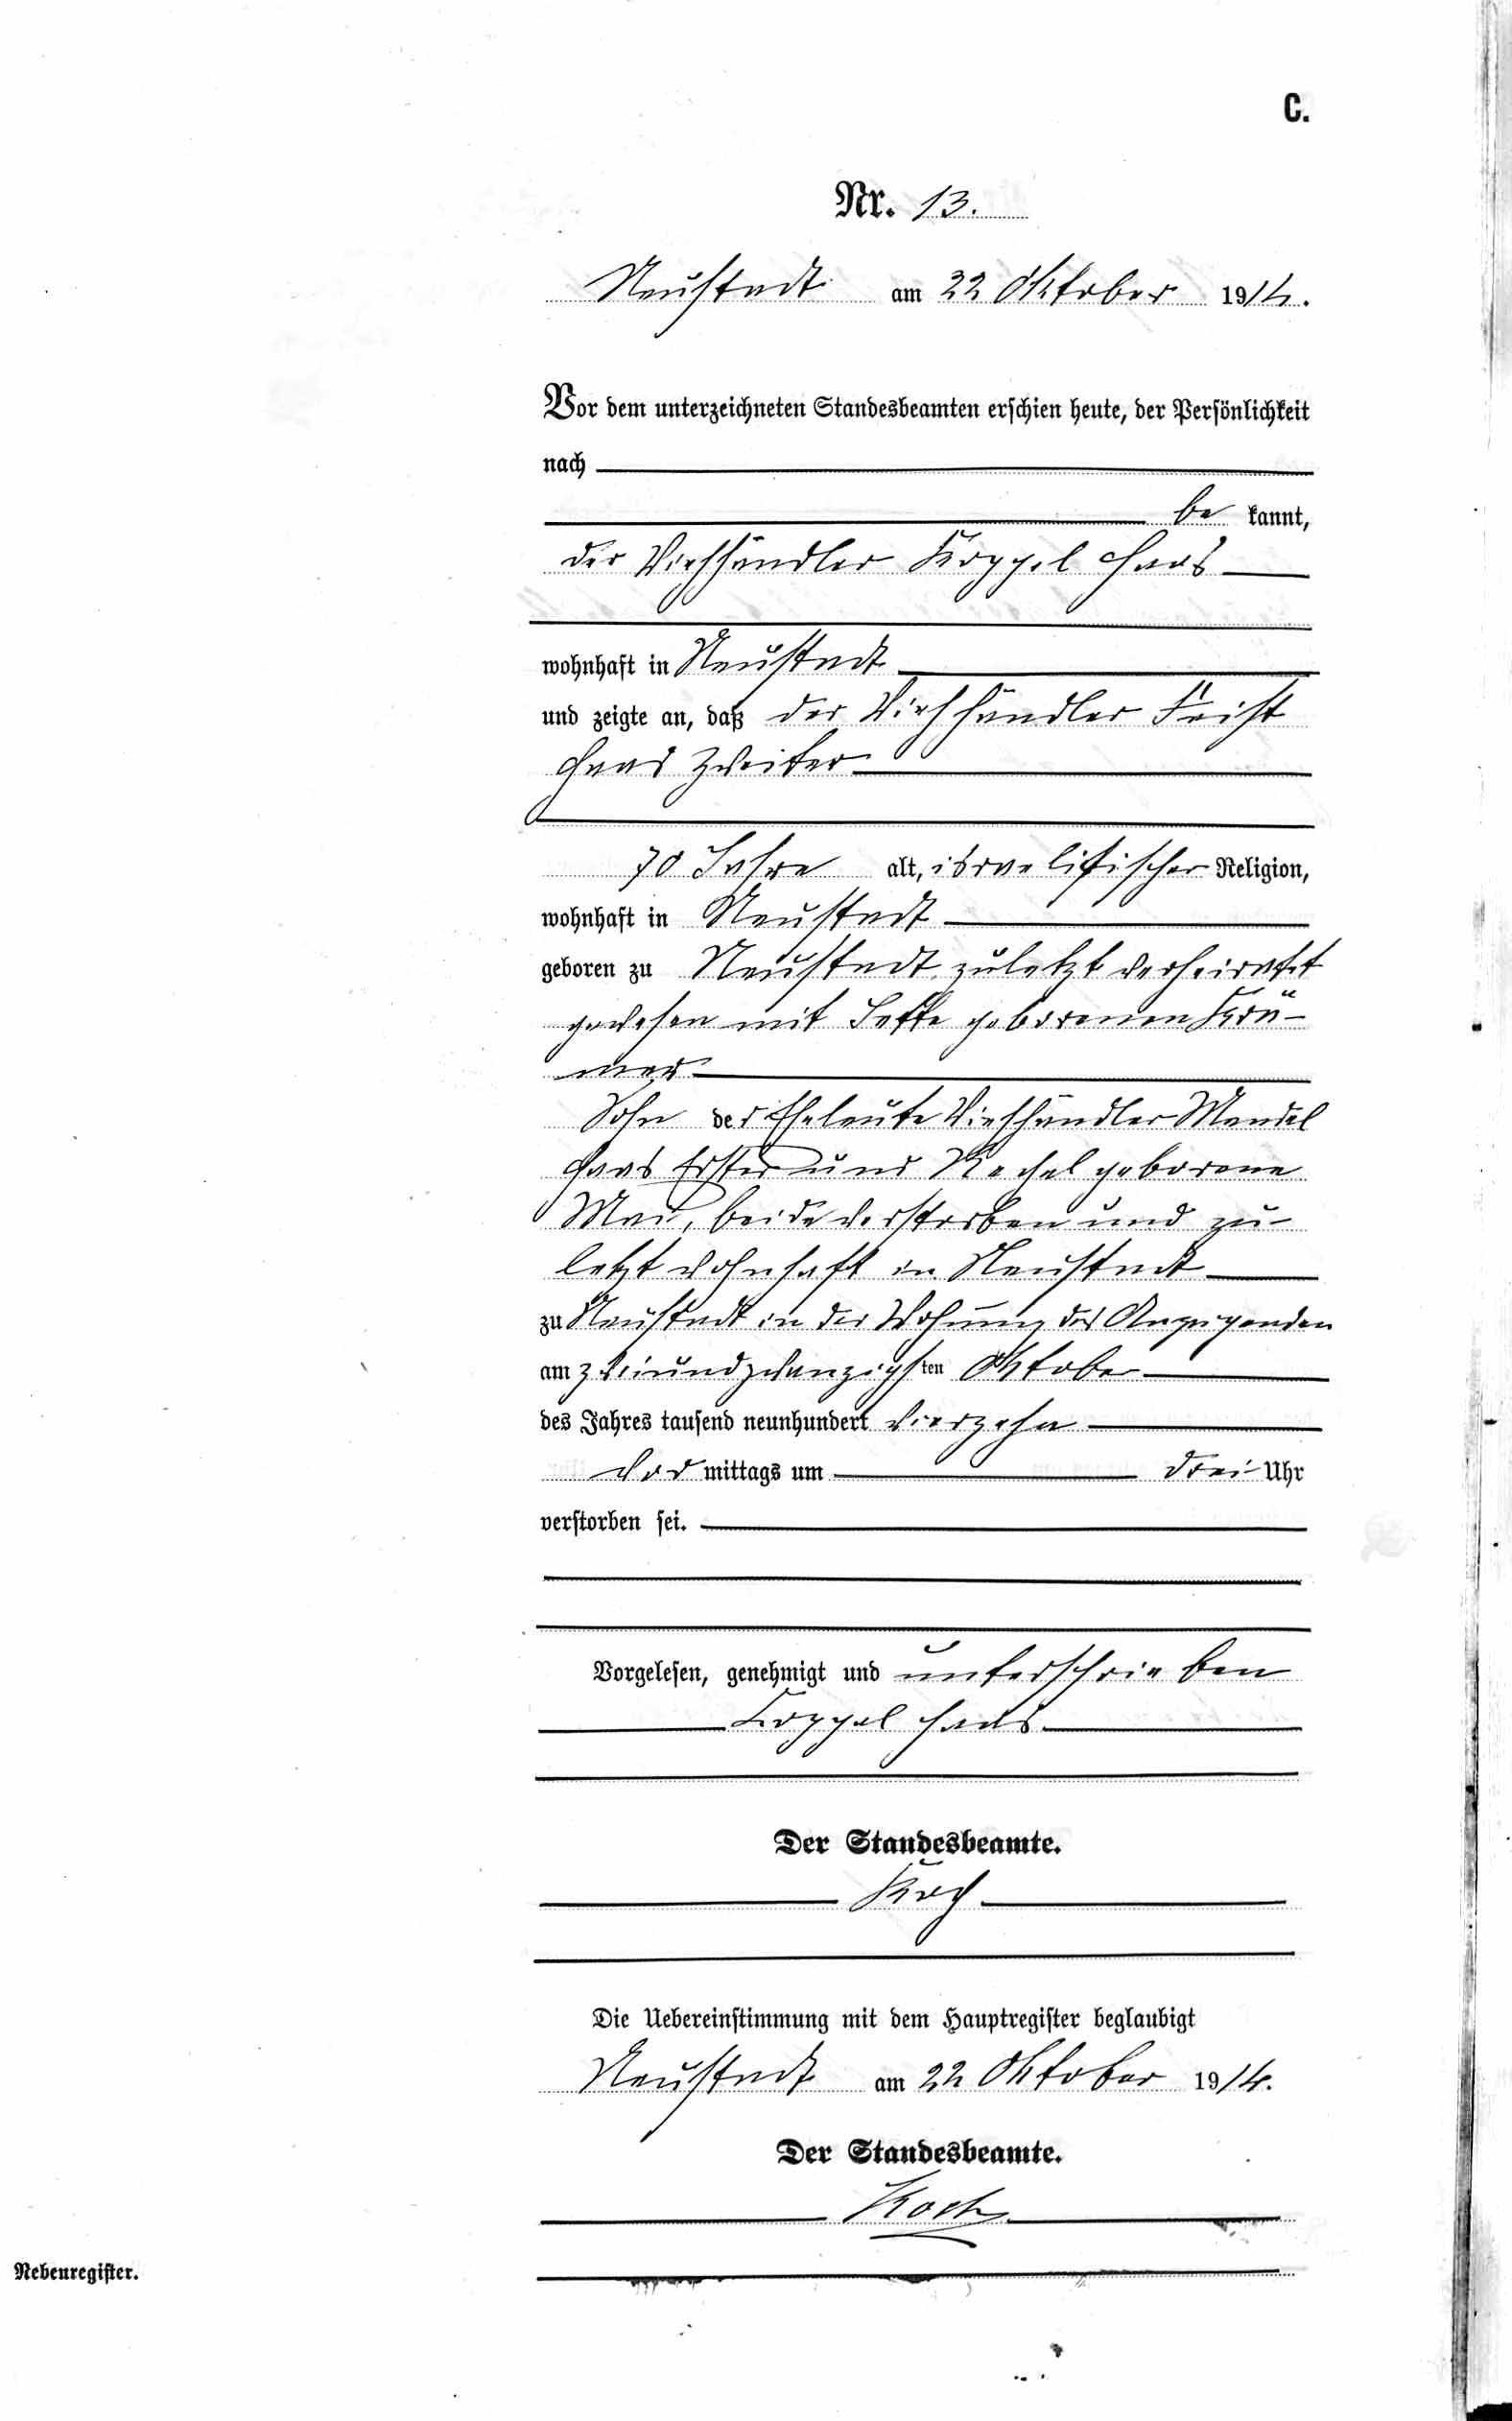 C.
Nr. 13.
Neustadt am 22 Oktober 1914.
Vor dem unterzeichneten Standesbeamten erschien heute, der Persönlichkeit
nach
be kannt,
der Viehhändler Koppel Haas
wohnhaft in Neustadt
und zeigte an, daß der Viehhändler Feist
Haas Zweiter
70 Jahre alt, israelitischer Religion,
wohnhaft in Neustadt
geboren zu Neustadt, zuletzt verheiratet
gewesen mit Jette geborenen Krä-
mer
Sohn der Eheleute Viehhändler Mendel
Haas Erster und Rachel geborene
beide verstorben und zu-
letzt wohnhaft in Neustadt
zu Neustadt in der Wohnung des Anzeigenden
am zweiundzwanzigsten Oktober
des Jahres tausend neunhundert vierzehn
vor mittags um drei Uhr
verstorben sei.
Vorgelesen, genehmigt und unterschrieben
Koppel Haas
Der Standesbeamte.
Koch
Die Uebereinstimmung mit dem Hauptregister beglaubigt
Neustadt am 22 Oktober 1914.
Der Standesbeamte.
Koch
Nebenregister.